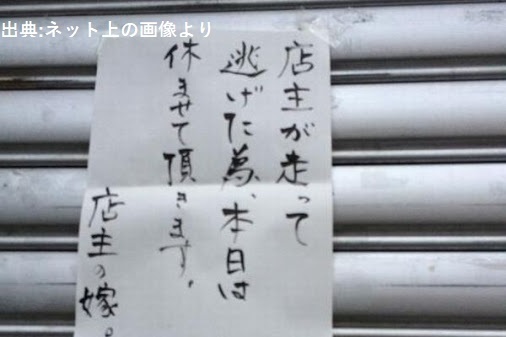 出典:ネット上の画像より
店主が走って
逃げた為、本日は
休ませて頂きます。
店主の嫁。